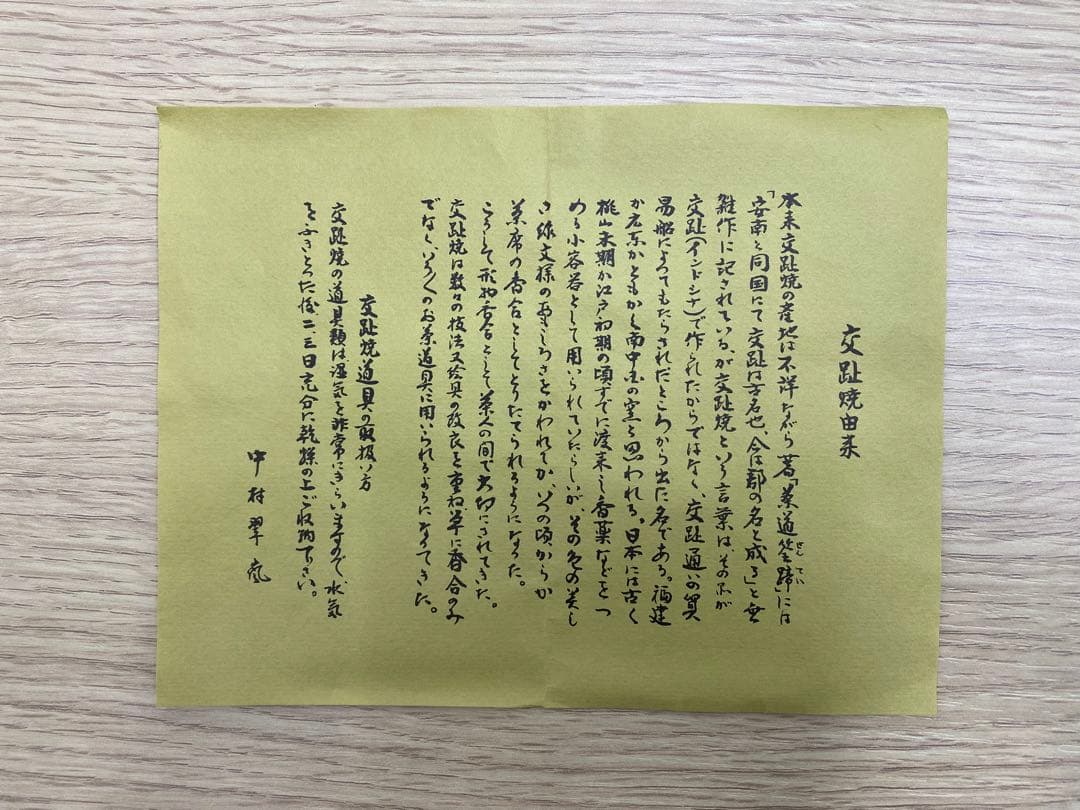 交趾焼由来
本来交趾焼の産地は不詳ながら著「茶道筌蹄」には
せんてい
「安南と同国にて交趾は古名也、今は郡の名と成る」と
雑作に記されている、が交趾焼という言葉は、その品が
交趾(インドシナ)で作られたからではなく、交趾通いの貿
易船によってもたらされたところから出た名である。福建
か広東かともかく南中国の窯と思われる。日本には古く
桃山末期か江戸初期の頃すでに渡来し香薬などをつ
める小容器として用いられていたらしいが、その色の美し
さ、文様のおもしろさをかわれてか、いつの頃からか
茶席の香合としてとりたてられるようになった。
こうして形物香合として茶人の間で大切にされてきた。
交趾焼は数々の技法又絵具の改良を重ね、単に香合のみ
でなく、いろいろのお茶道具に用いられるようになってきた。
交趾焼道具の取扱い方
交趾焼の道具類は湿気を非常にきらいますので、水気
をふきとった後二、三日充分に乾燥の上ご収納下さい。
中村翠嵐